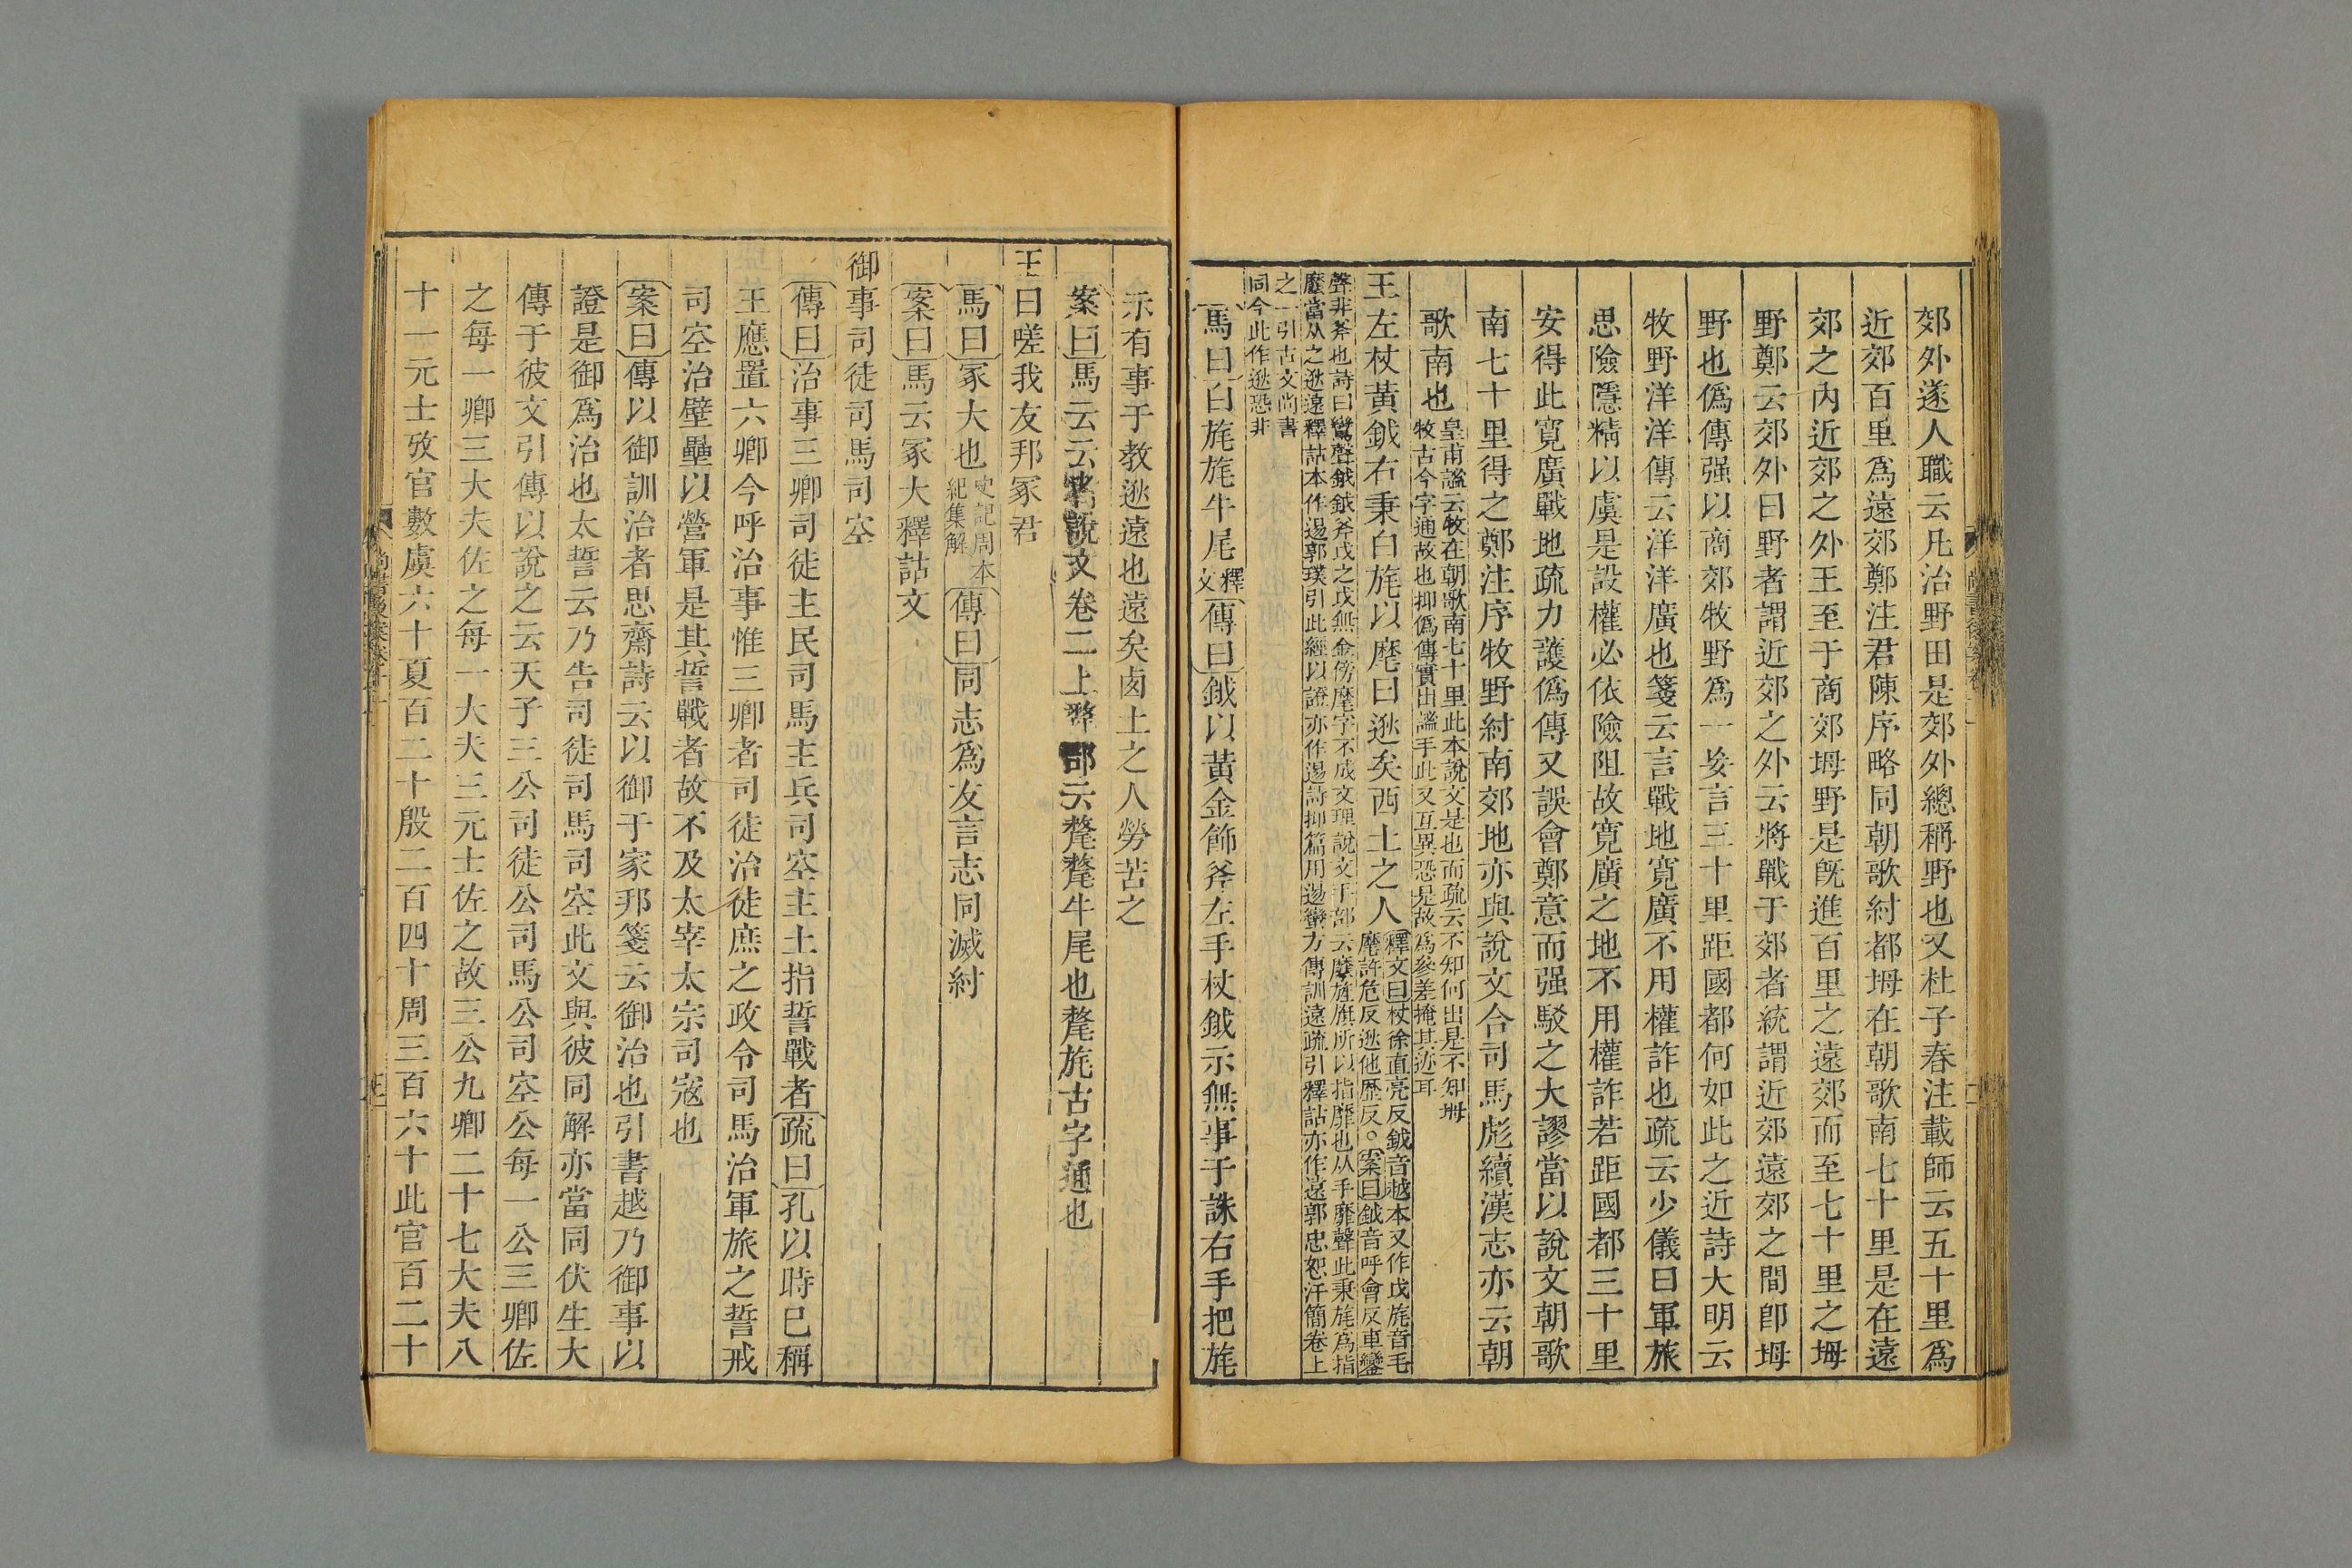 郊外遂人職云凡治野田是郊外總稱野也又杜子春注載師云五十里爲
近郊百里爲遠郊鄭注君陳序略同朝歌紂都坶在朝歌南七十里是在遠
郊之內近郊之外王至于商郊坶野是旣進百里之遠郊而至七十里之坶
野鄭云郊外曰野者謂近郊之外云將戰于郊者統謂近郊遠郊之間卽坶
野也僞傳强以商郊牧野爲一妄言三十里距國都何如此之近詩大明云
牧野洋洋傳云洋洋廣也箋云言戰地寬廣不用權詐也疏云少儀曰軍旅
思險隱精以虞是設權必依險阻故寬廣之地不用權詐若距國都三十里
安得此寬廣戰地疏力護僞傳又誤會鄭意而强駁之大謬當以說文朝歌
南七十里得之鄭注序牧野紂南郊地亦與說文合司馬彪續漢志亦云朝
歌南也皇甫謐云牧在朝歌南七十里此本說文是也而疏云不知何出是不知坶
牧古今字通故也抑僞傳實出謐手此又互異恐是故爲參差掩其迹耳
王左杖黃鉞右秉白旄以麾曰逖矣西土之人釋文曰杖徐直亮反鉞音越本又作戉旄音毛
麾許危反逖他歷反○案曰鉞音呼會反車鑾
聲非斧也詩曰鸞聲鉞鉞斧戉之戉無金傍麾字不成文理說文手部云麾旌旗所以指麾也从手靡聲此秉旄爲指
麾當从之逖遠釋詁本作逷郭璞引此經以證亦作逷詩抑篇用逷蠻方傳訓遠疏引釋詁亦作遠郭忠恕汗簡卷上
之一引古文尚書
同今此作逖恐非
馬曰白旄旄牛尾釋文傳曰鉞以黃金飾斧左手杖鉞示無事于誅右手把旄
示有事于教逖遠也遠矣西土之人勞苦之
案曰馬云云者說文卷二上犛部云氂犛牛尾也氂旄古字通也
王曰嗟我友邦冢君
馬曰冢大也史記周本紀集解傳曰同志爲友言志同滅紂
案曰馬云冢大釋詁文
御事司徒司馬司空
傳曰治事三卿司徒主民司馬主兵司空主土指誓戰者疏曰孔以時已稱
王應置六卿今呼治事惟三卿者司徒治徒庶之政令司馬治軍旅之誓戒
司空治壁壘以營軍是其誓戰者故不及太宰太宗司寇也
案曰傳以御訓治者思齊詩云以御于家邦箋云御治也引書越乃御事以
證是御爲治也太誓云乃告司徒司馬司空此文與彼同解亦當同伏生大
傳于彼文引傳以說之云天子三公司徒公司馬公司空公每一公三卿佐
之每一卿三大夫佐之每一大夫三元士佐之故三公九卿二十七大夫八
十一元士攷官數虞六十夏百二十殷二百四十周三百六十此官百二十